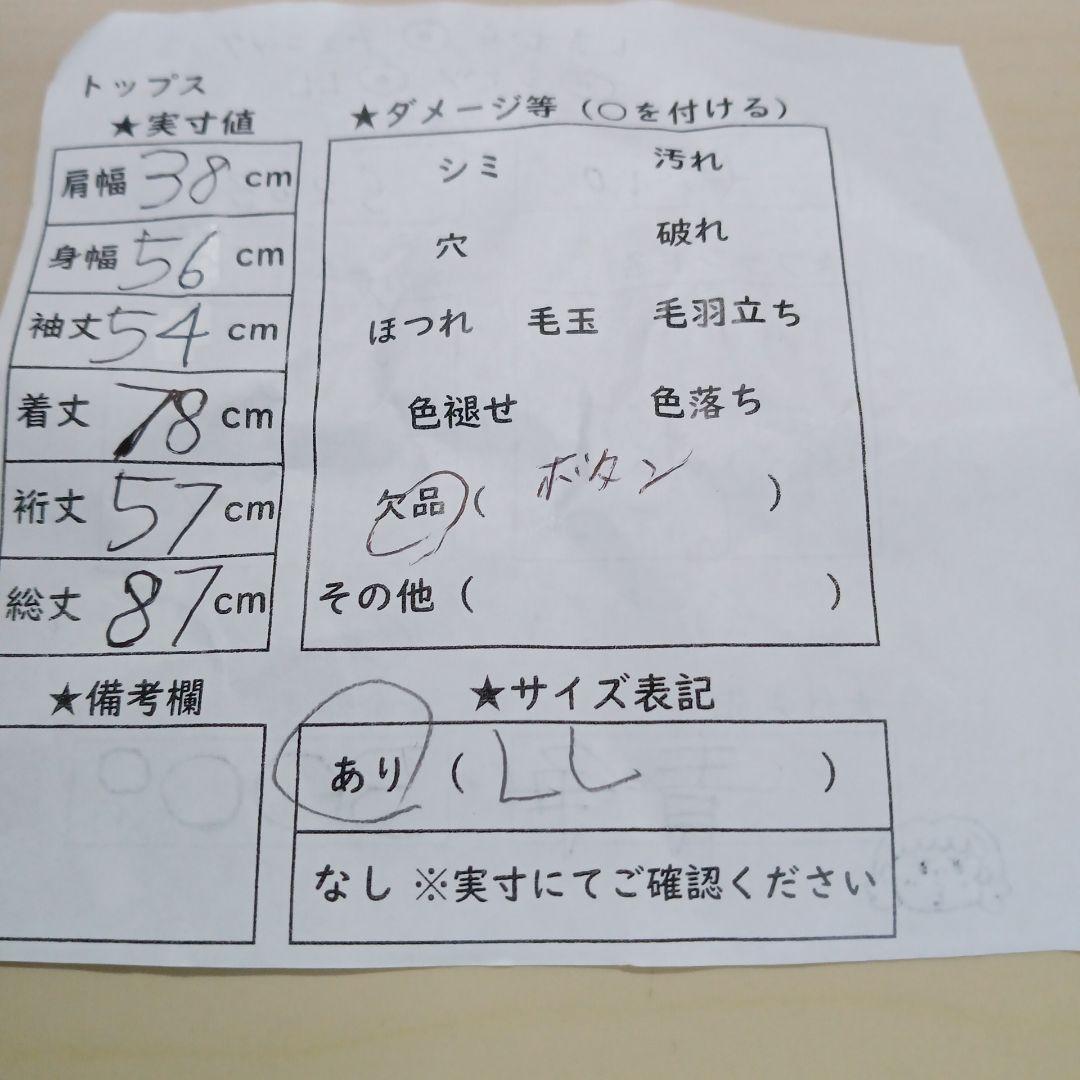 トップス
★実寸値
肩幅 38 cm
身幅 56 cm
袖丈 54 cm
着丈 78 cm
裄丈 57 cm
総丈 87 cm
★ダメージ等（○を付ける）
シミ 汚れ
穴 破れ
ほつれ 毛玉 毛羽立ち
色褪せ 色落ち
欠品（ ボタン ）
その他（ ）
★備考欄
★サイズ表記
あり（ LL ）
なし ※実寸にてご確認ください